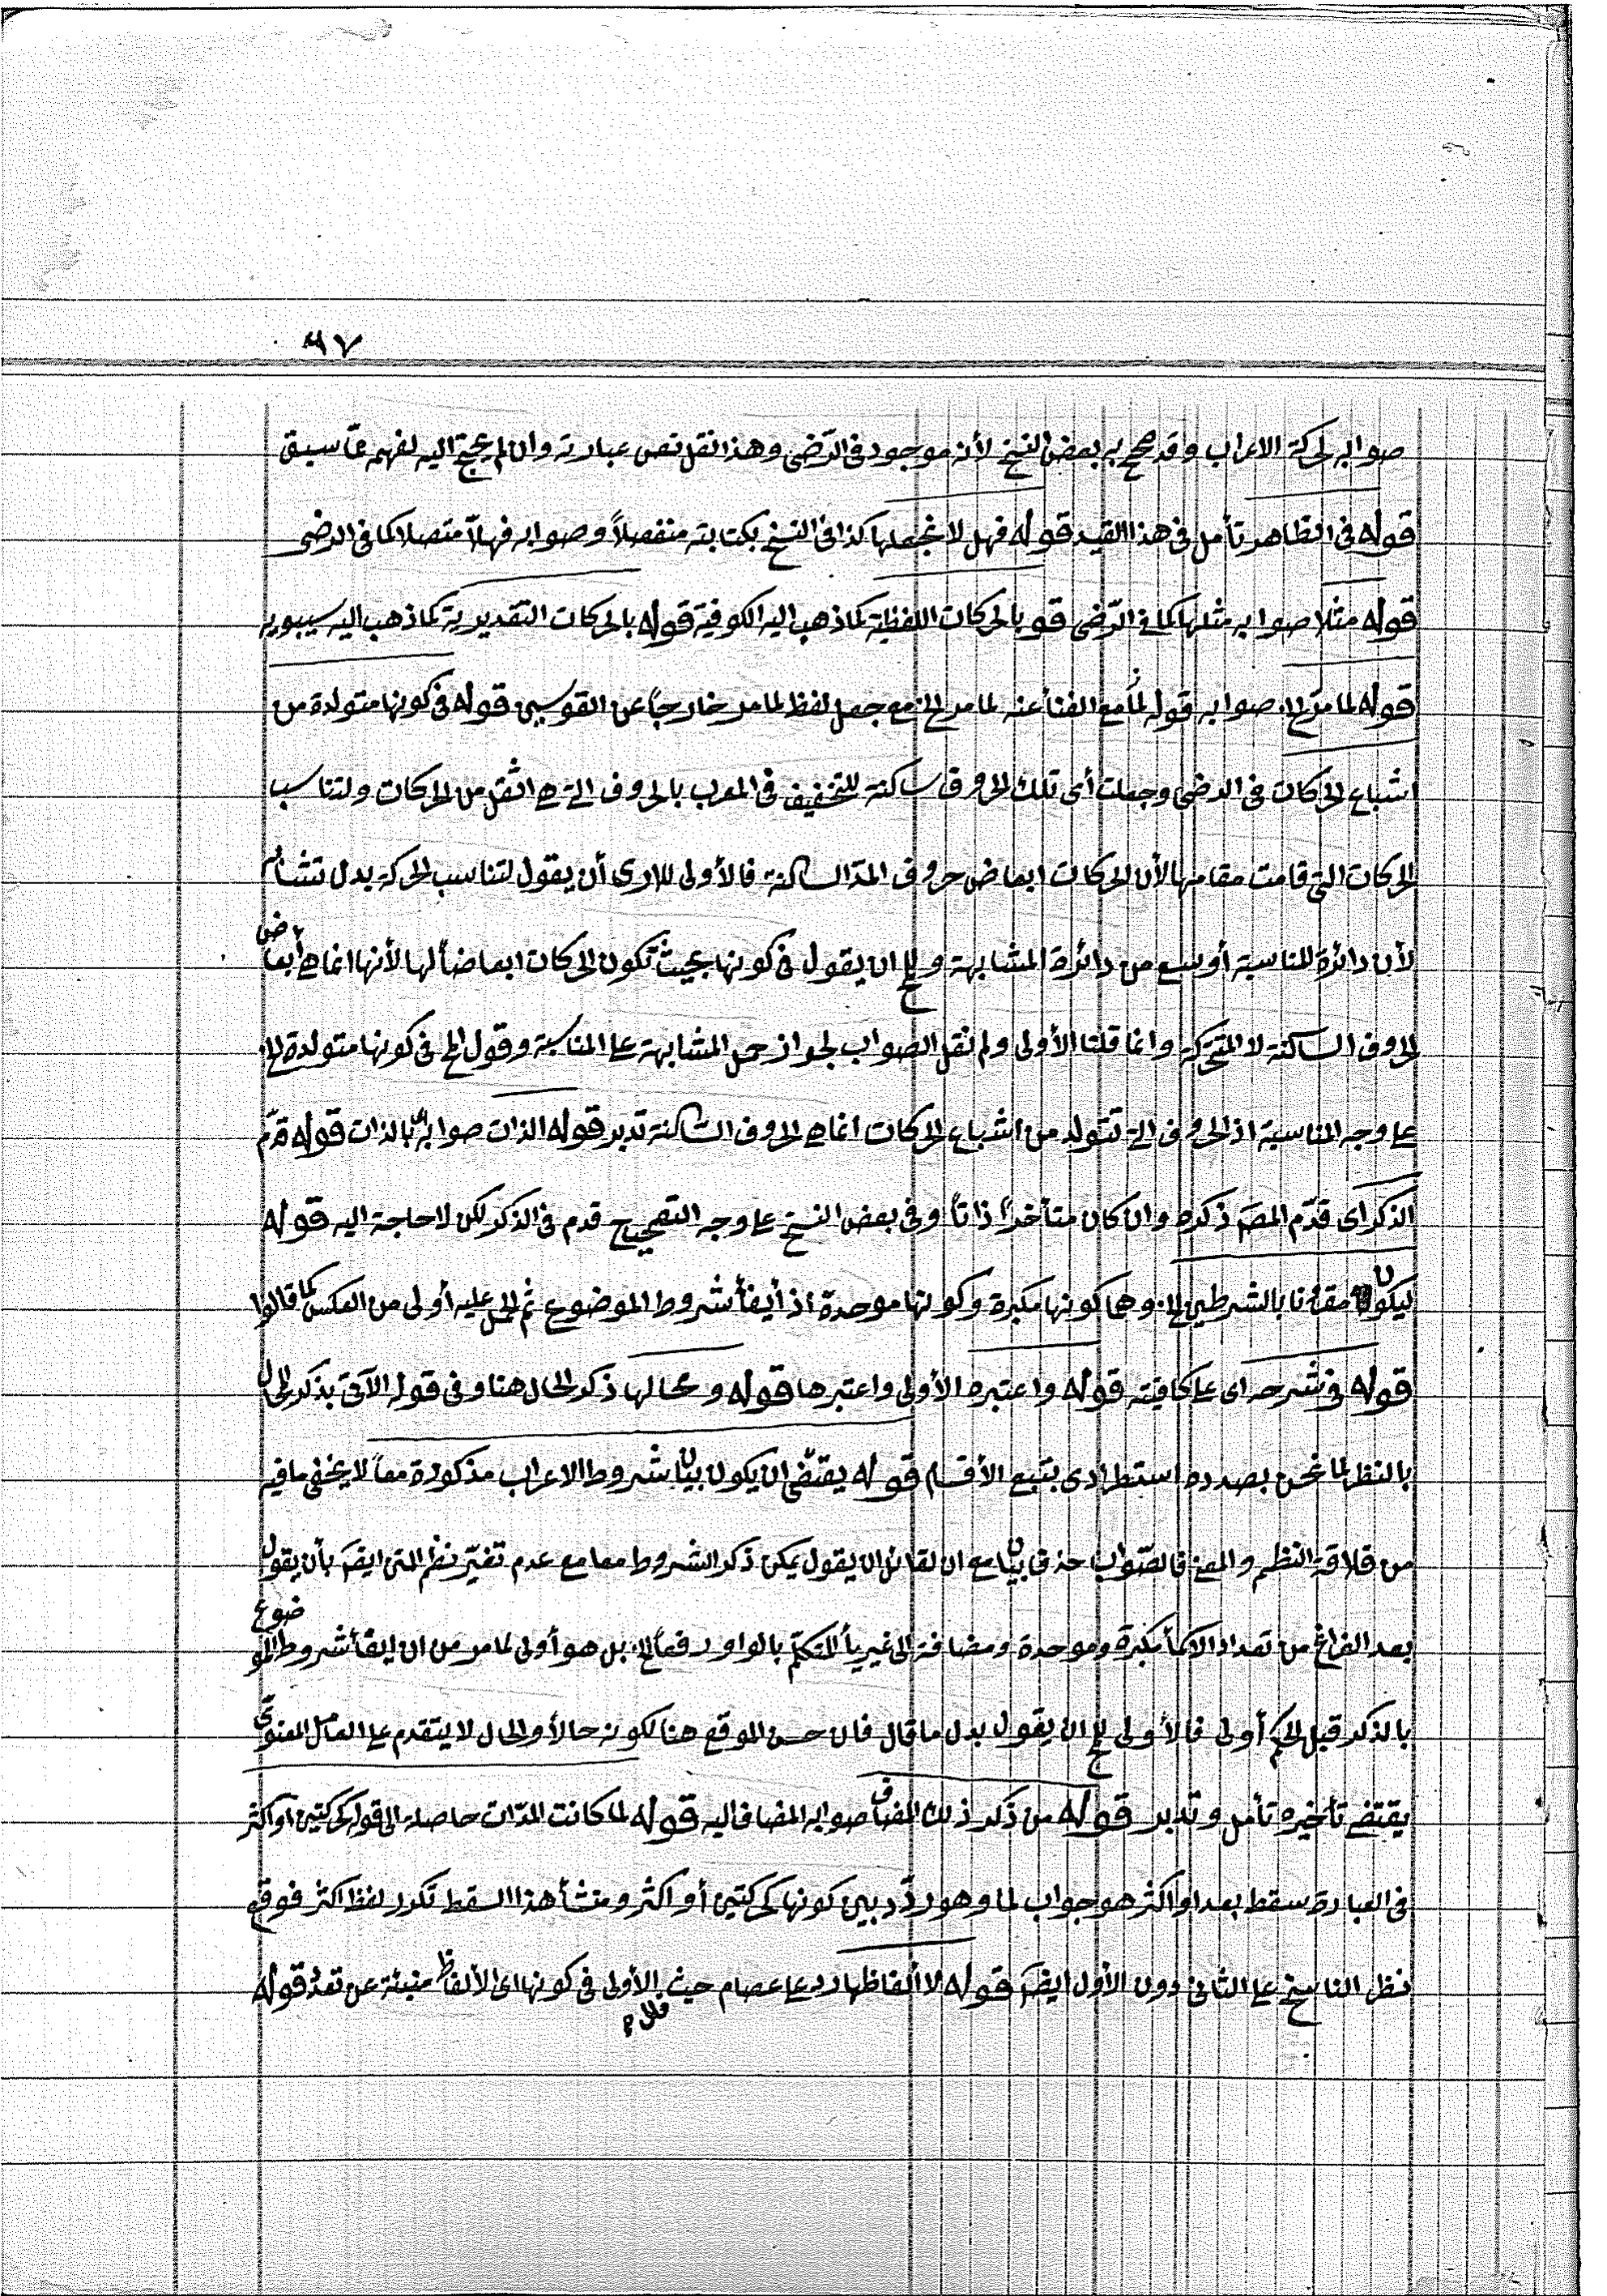 ٩٧
صوابه لحركة الاعراب وقد صحح به بعض النسخ لأنه موجود فى الرّضى وهذا نقل نص عبارته وان لم يحتج اليه لفهمه عمّا سبق
قوله فى الظاهر تأمل فى هذا القيد قوله فهل لا نجعلها كذا فى النسخ بكتابته منفصلاً وصوابه فهلاّ متصلا كما فى الرضى
قوله مثلا صوابه مثلها كما فى الرّضى قو بالحركات اللفظية كما ذهب اليه الكوفية قوله بالحركات التقديرية كما ذهب اليه سيبويه
قوله لما مرّ الخ صوابه قوله مع الفنأ عنه لما مر الخ مع جعل لفظ لما مر خارجاً عن القوسين قوله فى كونها متولدة من
اشباع الحركات فى الرضى وجعلت أى تلك الحروف ساكنة للتخفيف فى المعرب بالحروف التى هى اثقل من الحركات ولتناسب
الحركات التى قامت مقامها لأن الحركات ابعاض حروف المدّ الساكنة فالأولى للارى أن يقول لتناسب الحركة بدل تشابه
لأن دائرة المناسبة أوسع من دائرة المشابهة و ان يقول فى كونها بحيث تكون الحركات ابعاضاً لها لأنها انما هى أبعاض
الحروف الساكنة لا المتحركة وانما قلنا الأولى ولم نقل الصواب لجواز حمل المشابهة على المناسبة وقول فى كونها متولدة الخ
على وجه المناسبة اذ الحروف التى تتولد من اشباع الحركات انما هى الحروف الساكنة تدبر قوله الذات صوابه بالذات قوله قدّم
الذكر اى قدّم المصـ ذكره وان كان متأخراً ذاتاً وفى بعض النسخ على وجه التصحيح قدم فى الذكر لكن لا حاجة اليه قوله
ليكون مقارنا بالشرطين الخ وهما كونها مكبرة وكونها موحدة اذ أيفأ شروط الموضوع ثم الحمل عليه أولى من العكس كما قالوا
قوله فى شرحه اى على كافيته قوله واعتبره الأولى واعتبرها قوله وبحالها ذكر الحال هنا وفى قوله الآتى بذكر الحال
بالنظر لما نحن بصدده استطرادى بتبع الأقسام قوله يقتضى ان يكون بيان شروط الاعراب مذكورة معاً لا يخفى ما فيه
من قلاقة النظم والمعنى فالصّواب حذف بيان مع ان لقائل ان يقول يمكن ذكر الشروط معا مع عدم تغيّر نظم المتن ايضـ بأن يقول
بعد الفراغ من تعداد الاسمأ مكبرة وموحدة ومضافة الى غير يأ المتكلم بالواو رفعاً الخ بل هو أولى لما مر من ان ايفأ شروط الموضوع
بالذكر قبل الحكم أولى فالأولى ان يقول بدل ما قال فان حسن الموقع هنا لكونه حالا والحال لا يتقدم على العامل المعنوى
يقتضى تأخيره تأمل وتدبر قوله من ذكر ذلك المضاف صوابه المضاف اليه قوله لما كانت المدّات حاصلة الى قوله كحركتين أو اكثر
فى العبارة سقط بعد او اكثر هو جواب لما وهو ردّد بين كونها كحركتين أو اكثر ومنشأ هذا السقط تكرر لفظ اكثر فوقع
نظر الناسخ على الثانى دون الأول ايضـ قوله لا ألفاظها رد على عصام حيث الأولى فى كونها اى الألفاظ منبئة عن تعدّد قوله